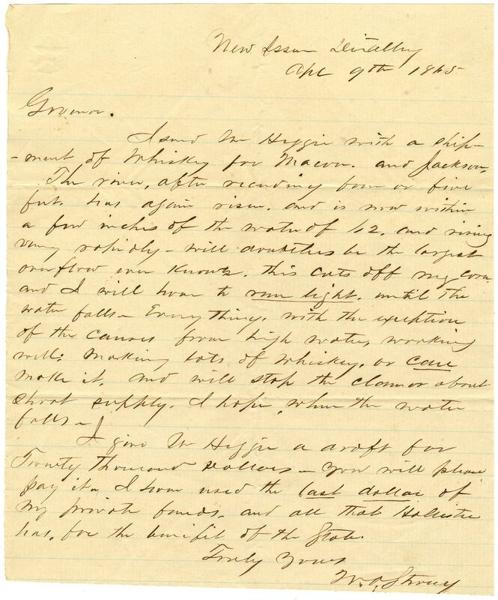 New Issue Distillery
Apl 9th 1865
Governor.
I send Mr Higgie with a ship-
-ment of Whiskey for Macon. and Jackson,
The river, after receeding four or five
feet, has again risen. and is now within
a few inches of the water of 62. and rising
very rapidly - will doubtless be the largest
overflow ever known. this cuts off my corn
and I will have to run light. until the
water falls - Everything, with the exception
of the causes from high water, working
well; making lots of whiskey. or can
make it. and will stop the clamor about
short supply. I hope, when the water
falls -
I give Mr Higgie a draft for
Twenty thousand Dollars - You will please
pay it - I have used the last dollar of
my private funds. and all that
has, for the benifit of the State.
Truly Yours